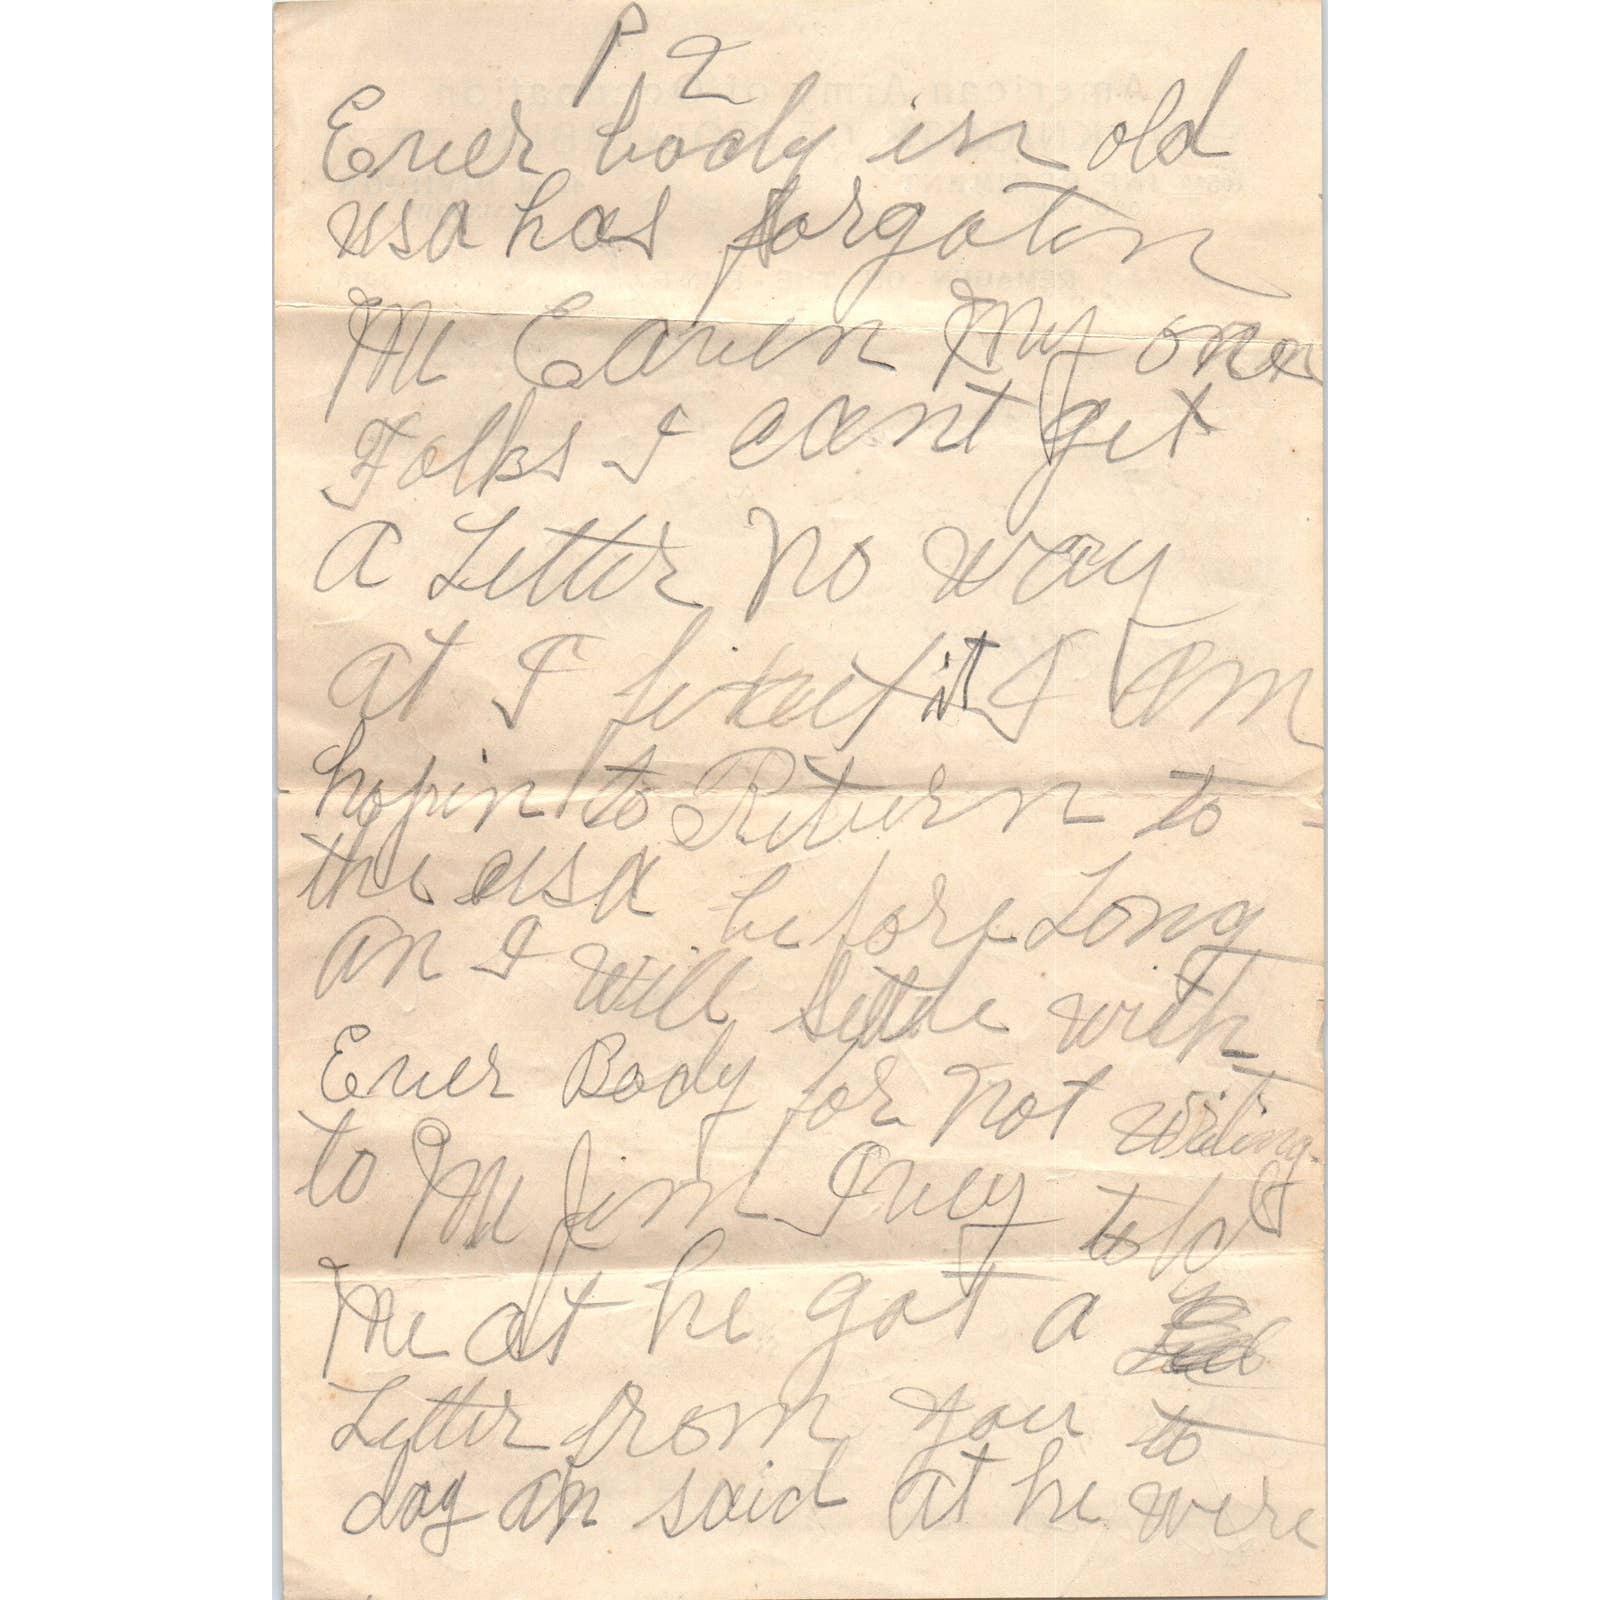 P. 2
Ever body in old
usa has forgotin
Me Eaven My one
Folks I cant get
a Letter no way
at I it I am
hopin to Return to
the usa before Long
an I will settle with
Ever Body for not writing
to Me Jim Ivey told
Me at he got a
Letter from you to
day an said at he were